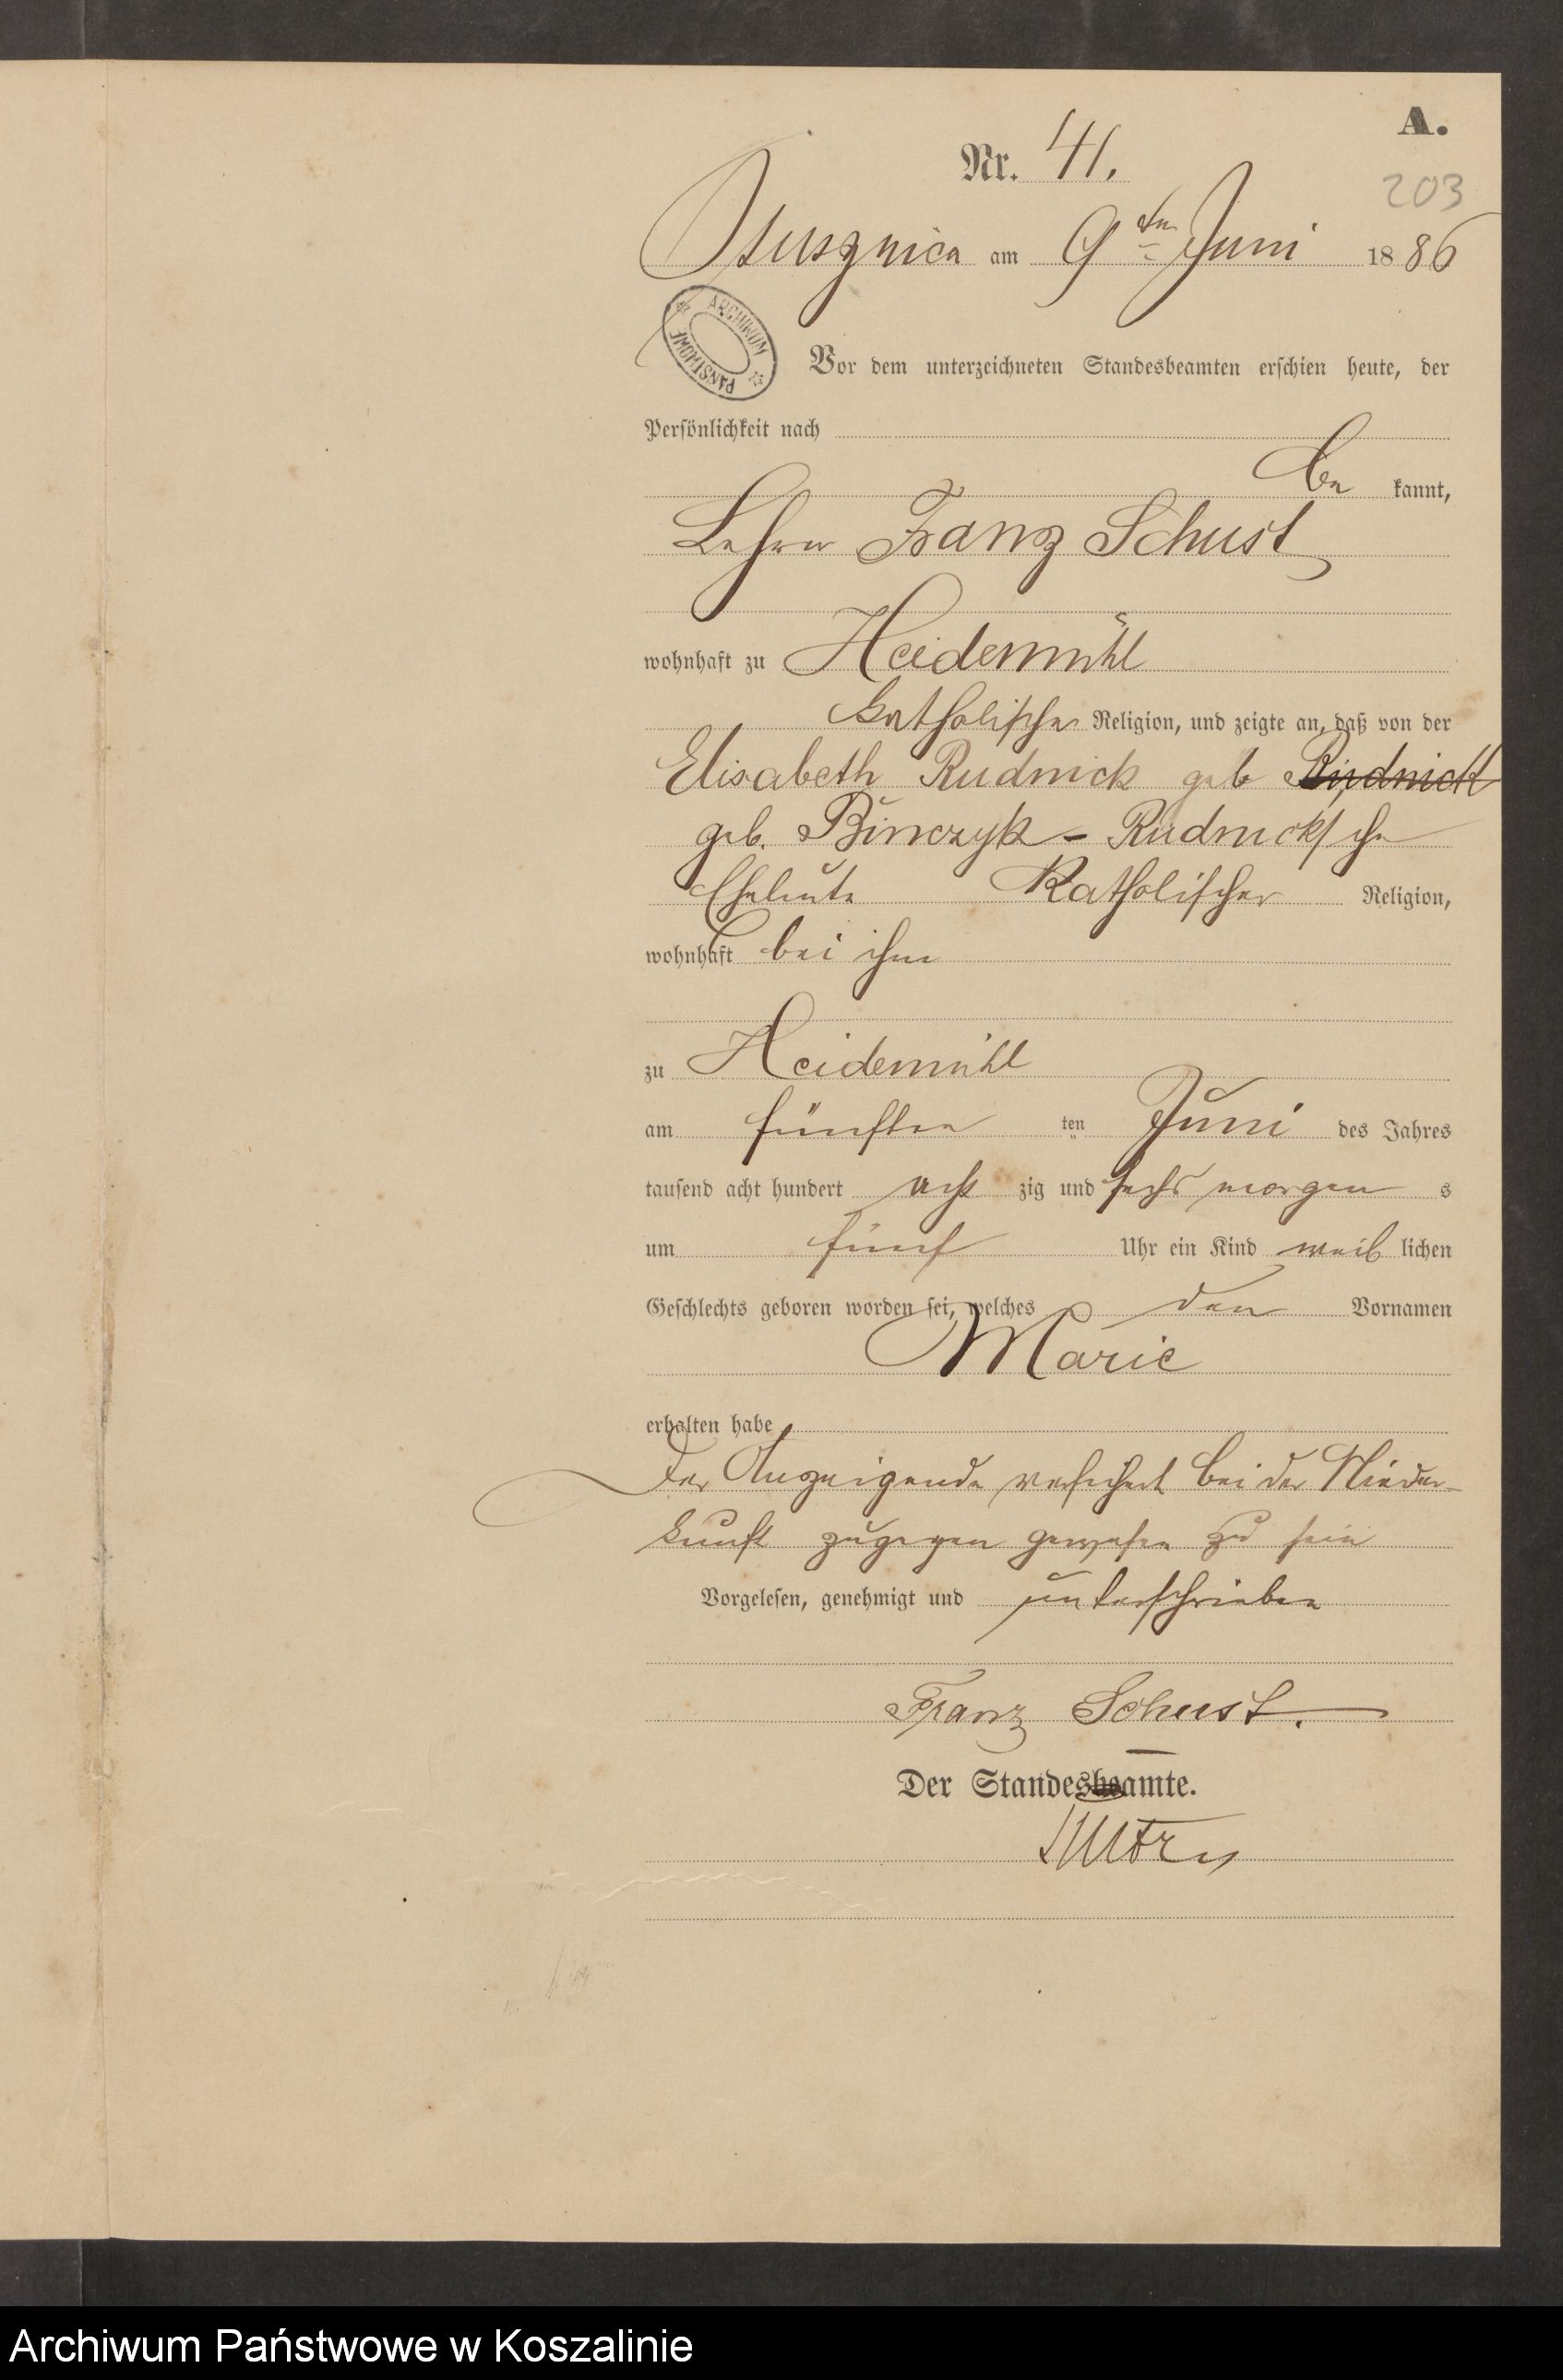 A.
Nr. 41.
203
am 9ten Juni 1886
ARCHIWUM PAŃSTWOWE
Vor dem unterzeichneten Standesbeamten erschien heute, der
Persönlichkeit nach
be kannt,
Lehrer Franz Schust
wohnhaft zu Heidemühl
katholischer Religion, und zeigte an, daß von der
Elisabeth Rudnick geb Rudnick
geb. Binczyk - Rudnicksche
Eheleute Katholischer Religion,
wohnhaft bei ihm
zu Heidemühl
am fünften ten Juni des Jahres
tausend acht hundert acht zig und sechs morgen s
um fünf Uhr ein Kind weib lichen
Geschlechts geboren worden sei, welches den Vornamen
Marie
erhalten habe
Der Anzeigende versichert bei der Nieder-
kunft zugegen gewesen zu sein
Vorgelesen, genehmigt und unterschrieben
Franz Schust.
Der Standesbeamte.
Archiwum Państwowe w Koszalinie